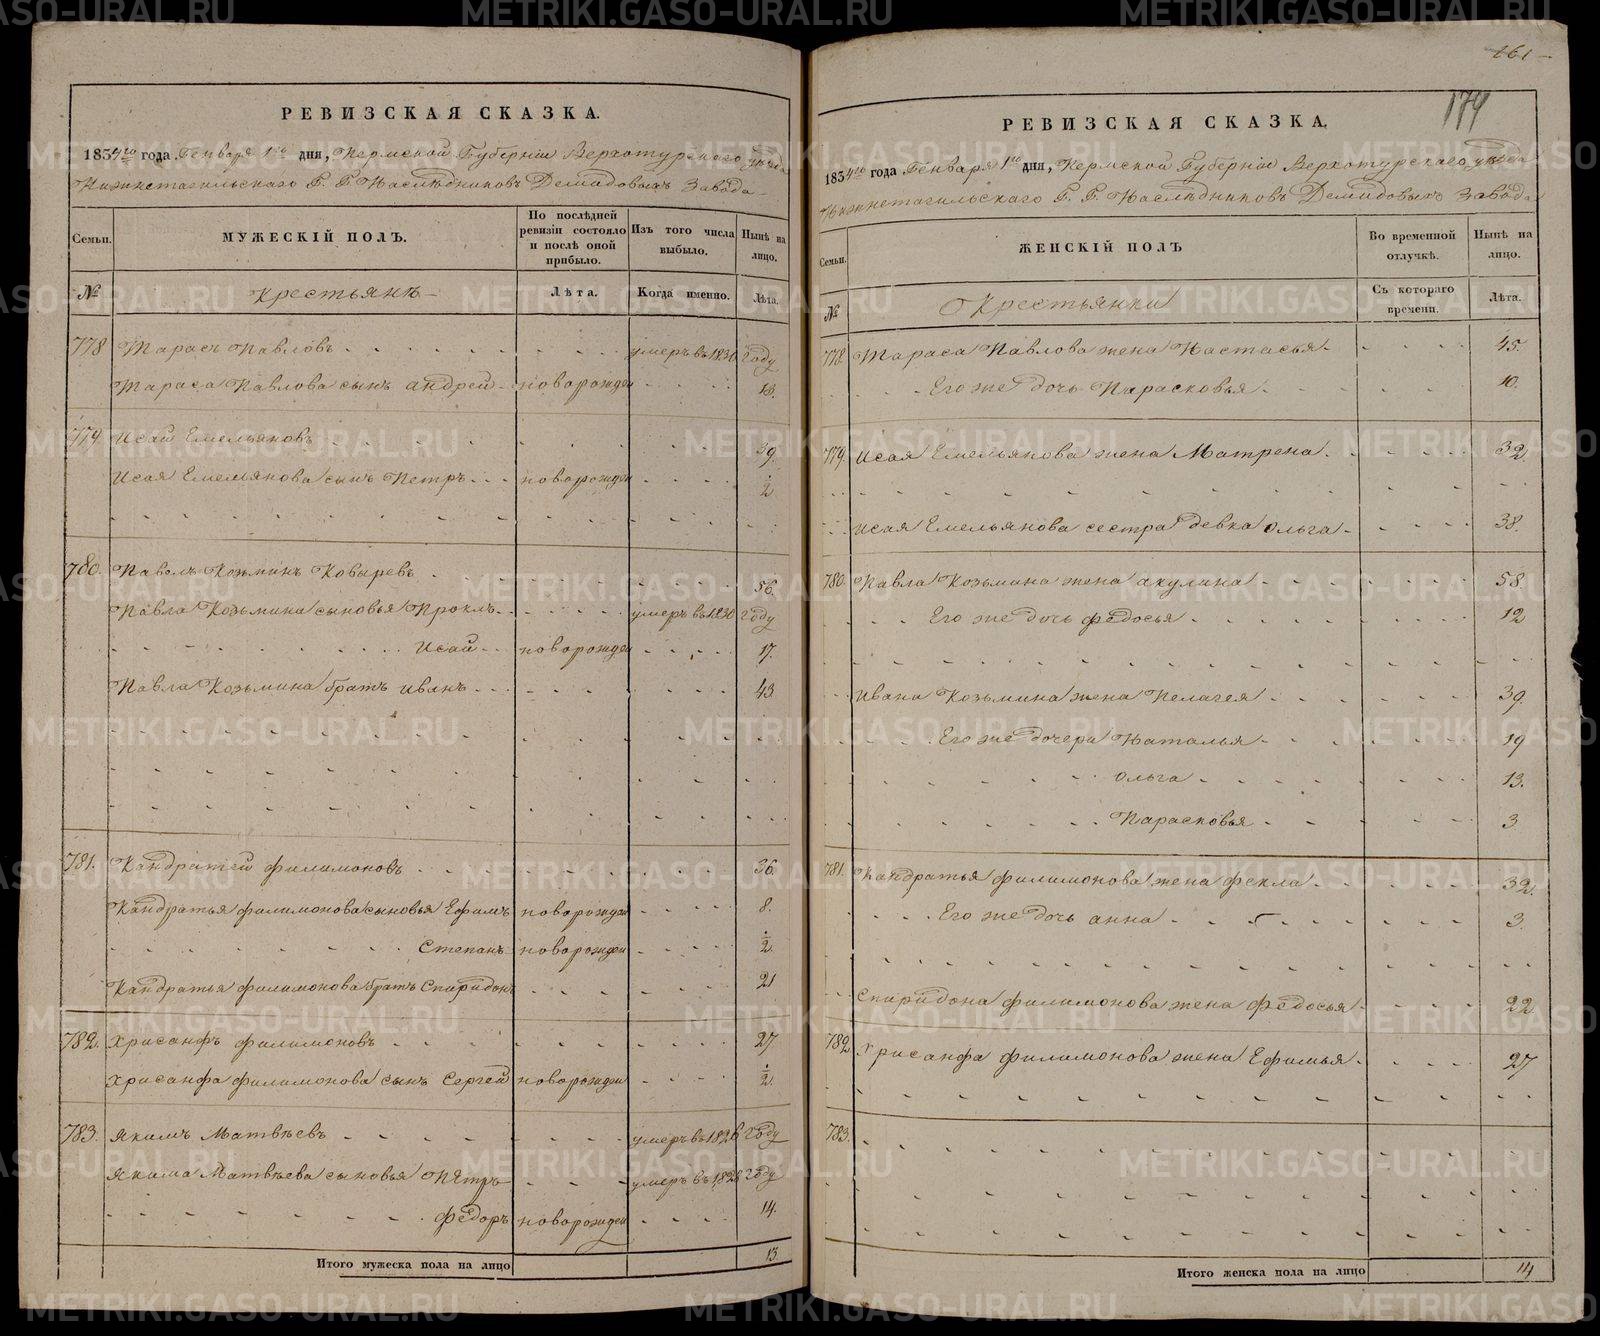 РЕВИЗСКАЯ СКАЗКА.
1834го года Генваря 1го дня, Пермской Губерніи Верхотурскаго уезда
Нижнетагильскаго Г. Г. Наслѣдниковъ Демидовыхъ Завода
Семьи. МУЖЕСКІЙ ПОЛЪ. По послѣдней ревизіи состояло и послѣ оной прибыло. Изъ того числа выбыло. Нынѣ на лицо.
№ Крестьянъ Лѣта. Когда именно. Лѣта.
778 Тарасъ Павловъ умеръ въ 1830 году
Тараса Павлова сынъ андрей новорожден 13.
779. Исай Емельяновъ 39
Исая Емельянова сынъ Петръ новорожден 1/2
780. Павелъ Козминъ Ковыревъ 56.
Павла Козьмина сыновья Проклъ умеръ въ 1830 году
Исай новорожден 17.
Павла Козьмина братъ иванъ 43
781. Кандратей филимоновъ 36
Кандратья филимонова сыновья Ефимъ новорожден 8.
Степанъ новорожден 1/2
Кандратья филимонова братъ Спиридонъ 21
782. Хрисанфъ филимоновъ 27
Хрисанфа филимонова сынъ Сергей новорожден 1/2
783. Якимъ Матвѣевъ умеръ въ 1826 году
Якима Матвѣева сыновья Петръ умеръ въ 1828 году
Федоръ новорожден 14.
Итого мужеска пола на лицо 13
161
179
РЕВИЗСКАЯ СКАЗКА.
1834го года Генваря 1го дня, Пермской Губерніи Верхотурскаго уезда
Нижнетагильскаго Г. Г. Наслѣдниковъ Демидовыхъ Завода
Семьи. ЖЕНСКІЙ ПОЛЪ Во временной отлучкѣ. Нынѣ на лицо.
№ Крестьянки Съ котораго времени. Лѣта.
778. Тараса Павлова жена Настасья 45.
Его же дочь Парасковья 10.
779. Исая Емельянова жена Матрена 32
Исая Емельянова сестра девка ольга 38.
780. Павла Козьмина жена акулина 58.
Его же дочь федосья 12
ивана Козьмина жена Пелагея 39.
Его же дочери Наталья 19
ольга 13.
Парасковья 3
781. Кандратья филимонова жена фекла 32.
Его же дочь анна 3.
Спиридона филимонова жена федосья 22
782 Хрисанфа филимонова жена Ефимья 27
783.
Итого женска пола на лицо 14
METRIKI.GASO-URAL.RU